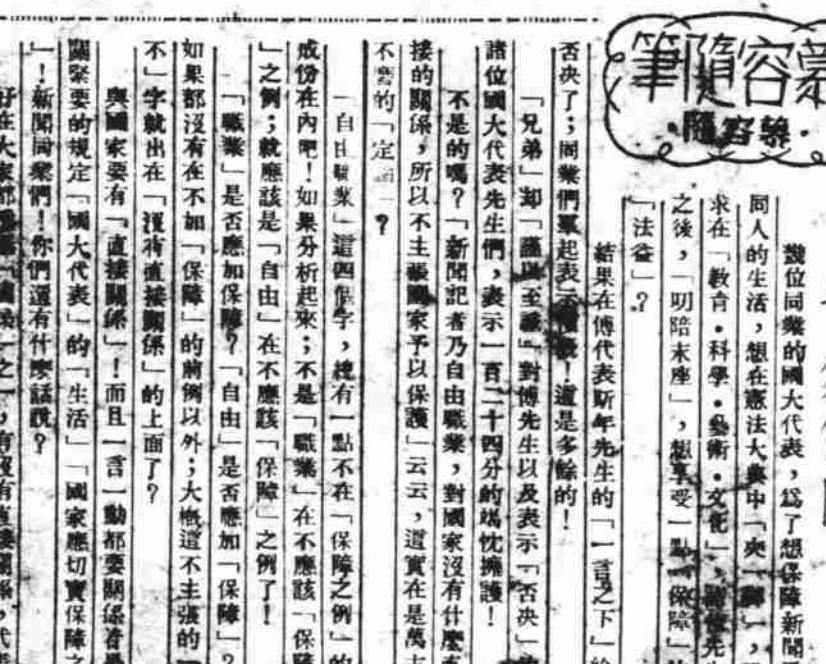 蒙容隨筆
•騫容隨•
幾位同業的國大代表，爲了想保障新聞
同人的生活，想在憲法大典中「夾一脚」，
求在「教育•科學•藝術•文化」，諸優先
之後，「叨陪末座」，想享受一點「保障」
「法益」？
結果在傅代表斯年先生的「一言之下」給
否決了；同業們羣起表示憤慨！這是多餘的！
「兄弟」却「謹以至誠」對傅先生以及表示「否決」的
諸位國大代表先生們，表示一百二十四分的竭忱擁護！
不是的嗎？「新聞記者乃自由職業，對國家沒有什麼直
接的關係，所以不主張國家予以保護」云云，這實在是萬古
不磨的「定論」？
「自由職業」這四個字，總有一點不在「保障之例」的
成份在內吧！如果分析起來；不是「職業」在不應該「保障
」之例；就應該是「自由」在不應該「保障」之例了！
「職業」是否應加保障？「自由」是否應加「保障」？
如果都沒有在不加「保障」的前例以外；大概這不主張的「
不」字就出在「沒有直接關係」的上面了？
與國家要有「直接關係」！而且一言一動都要關係
關緊要的規定「國大代表」的「生活」「國家應切實保障之
」！新聞同業們！你們還有什麼話說？
好在大家都